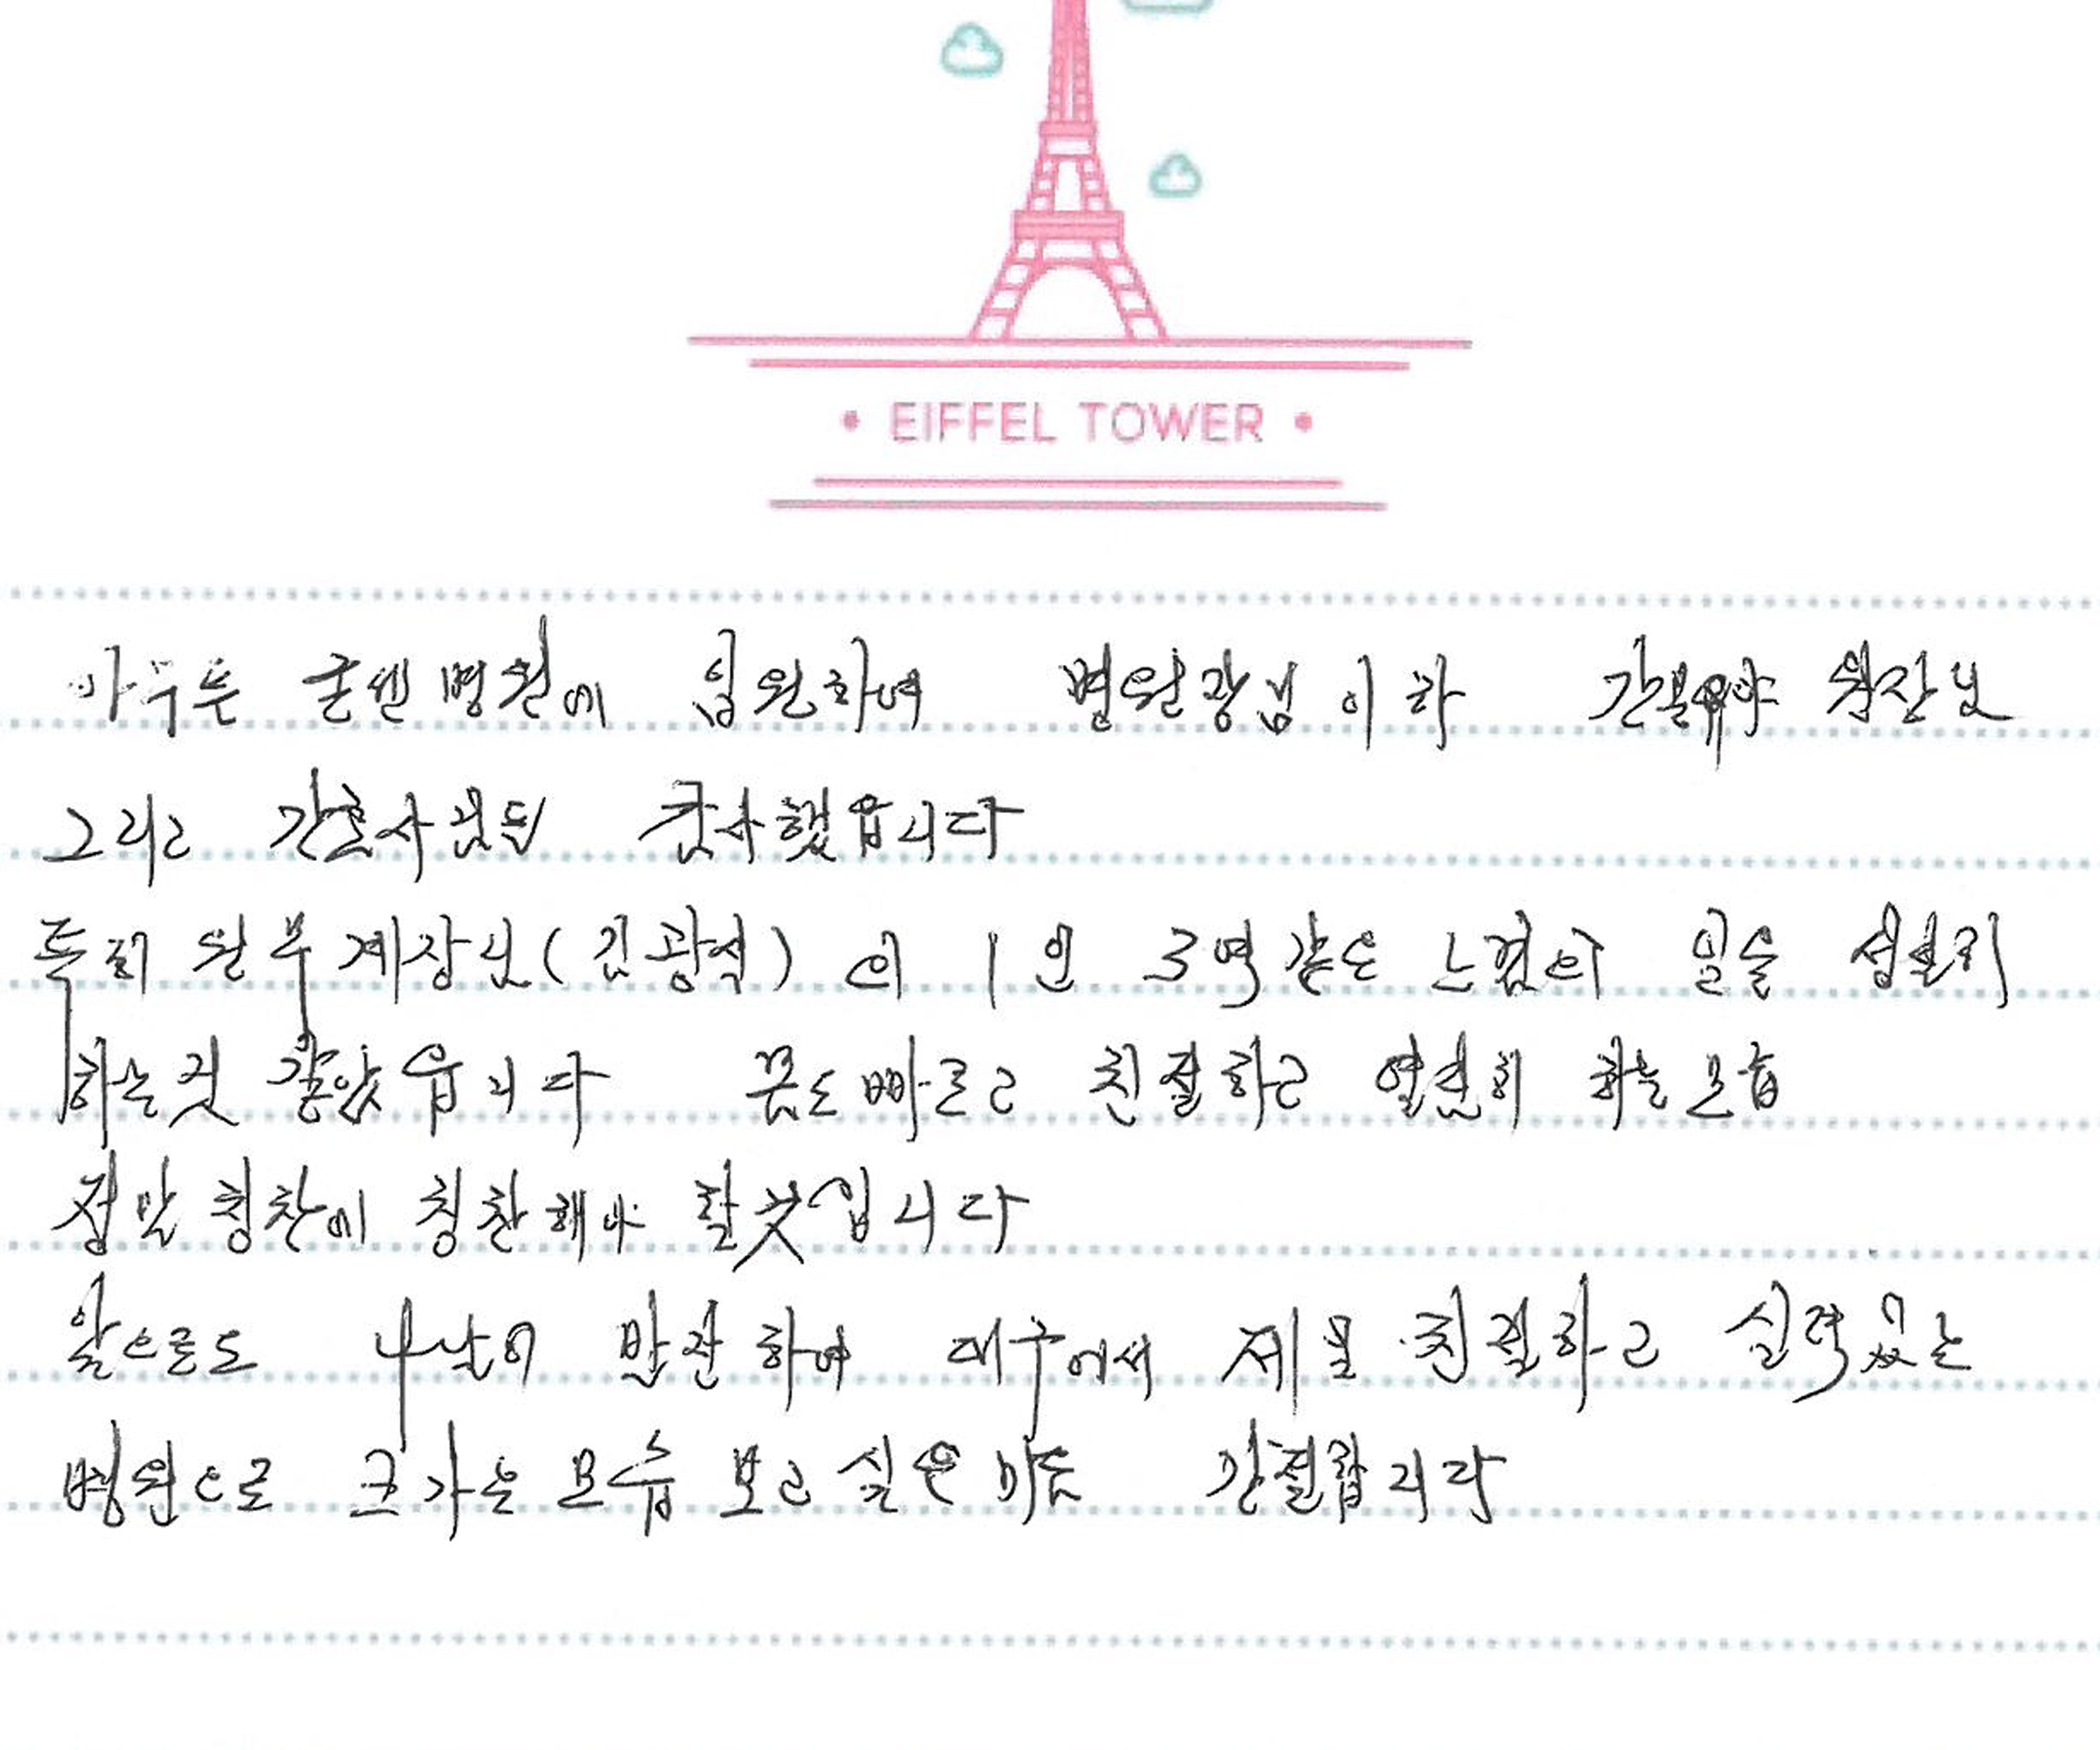 EIFFEL TOWER
아무튼 굳센병원에 입원하여 병원장님 이하 원장님
그리고 간호사님들 감사했읍니다
특히 원무계장님(김광석)의 1인 3역같은 느낌의 일을 섭렵
하는것 같았읍니다 몸도 빠르고 친절하고 열심히 하는모습
정말 칭찬에 칭찬해야 할것입니다
앞으로도 나날이 발전하여 대구에서 제일 친절하고 실력있는
병원으로 커가는 모습 보고싶은 마음 간절합니다